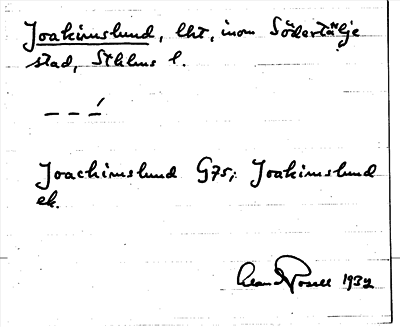 Joakimslund, lht, inom Södertälje
stad, Sthlms l.
– – –́
Joachimslund G75; Joakimslund
ek.
1932